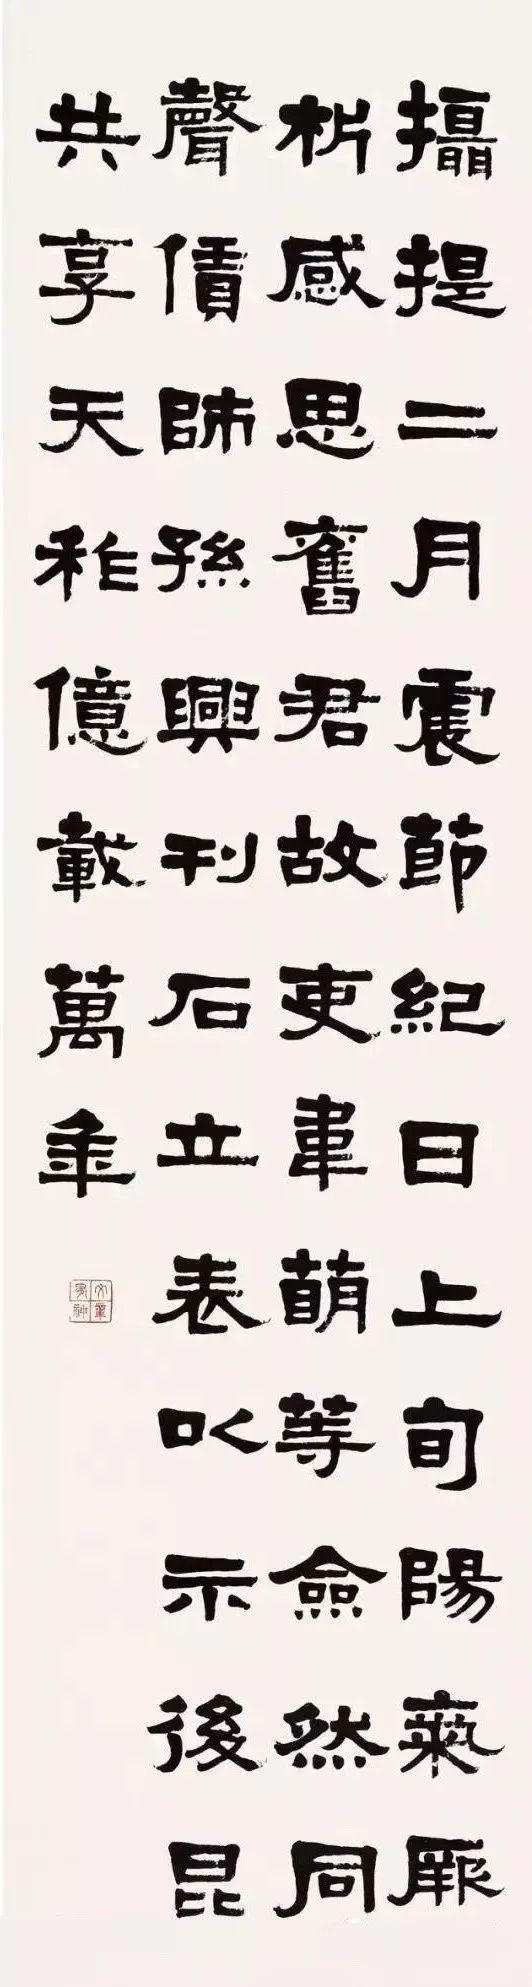 攝提二月震節紀日上旬陽氣厥
析感思舊君故吏韋萌等僉然同
聲賃師孫興刊石立表以示後昆
共享天祚億載萬年